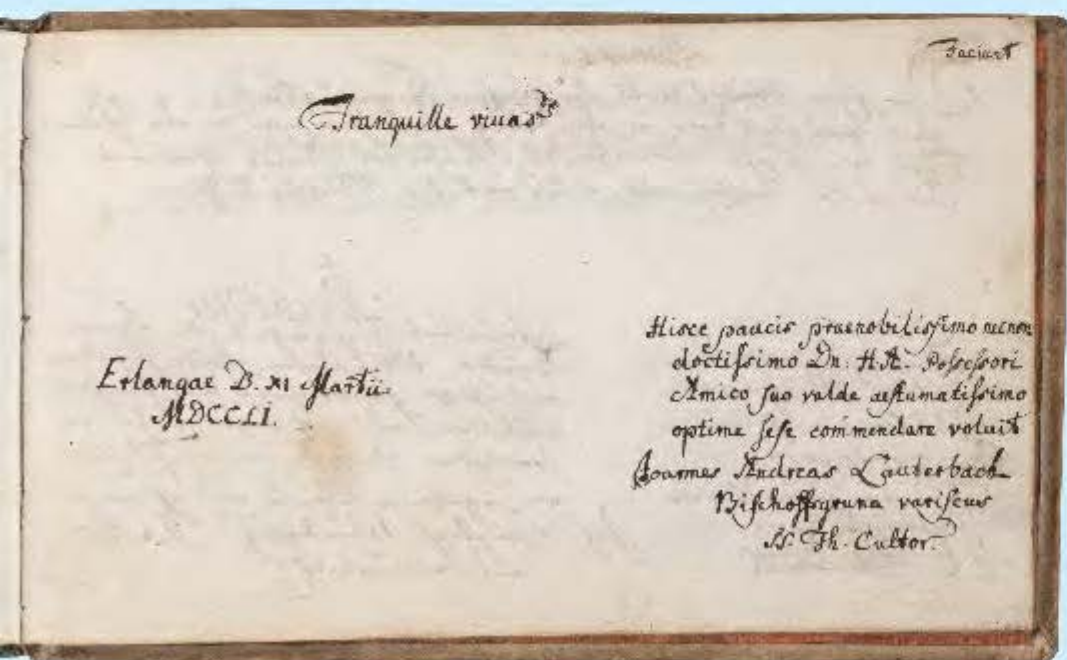 Faciunt
Tranquille vivas
Erlangae D. XI Martii
MDCCLI.
Hisce paucis praenobilissimo necnon
doctissimo Dn: H.A. Possessori
Amico suo valde aestumatissimo
optime sese commendare voluit
Joannes Andreas Lauterbach
Bischoffsgruna variscus
SS. Th. Cultor.